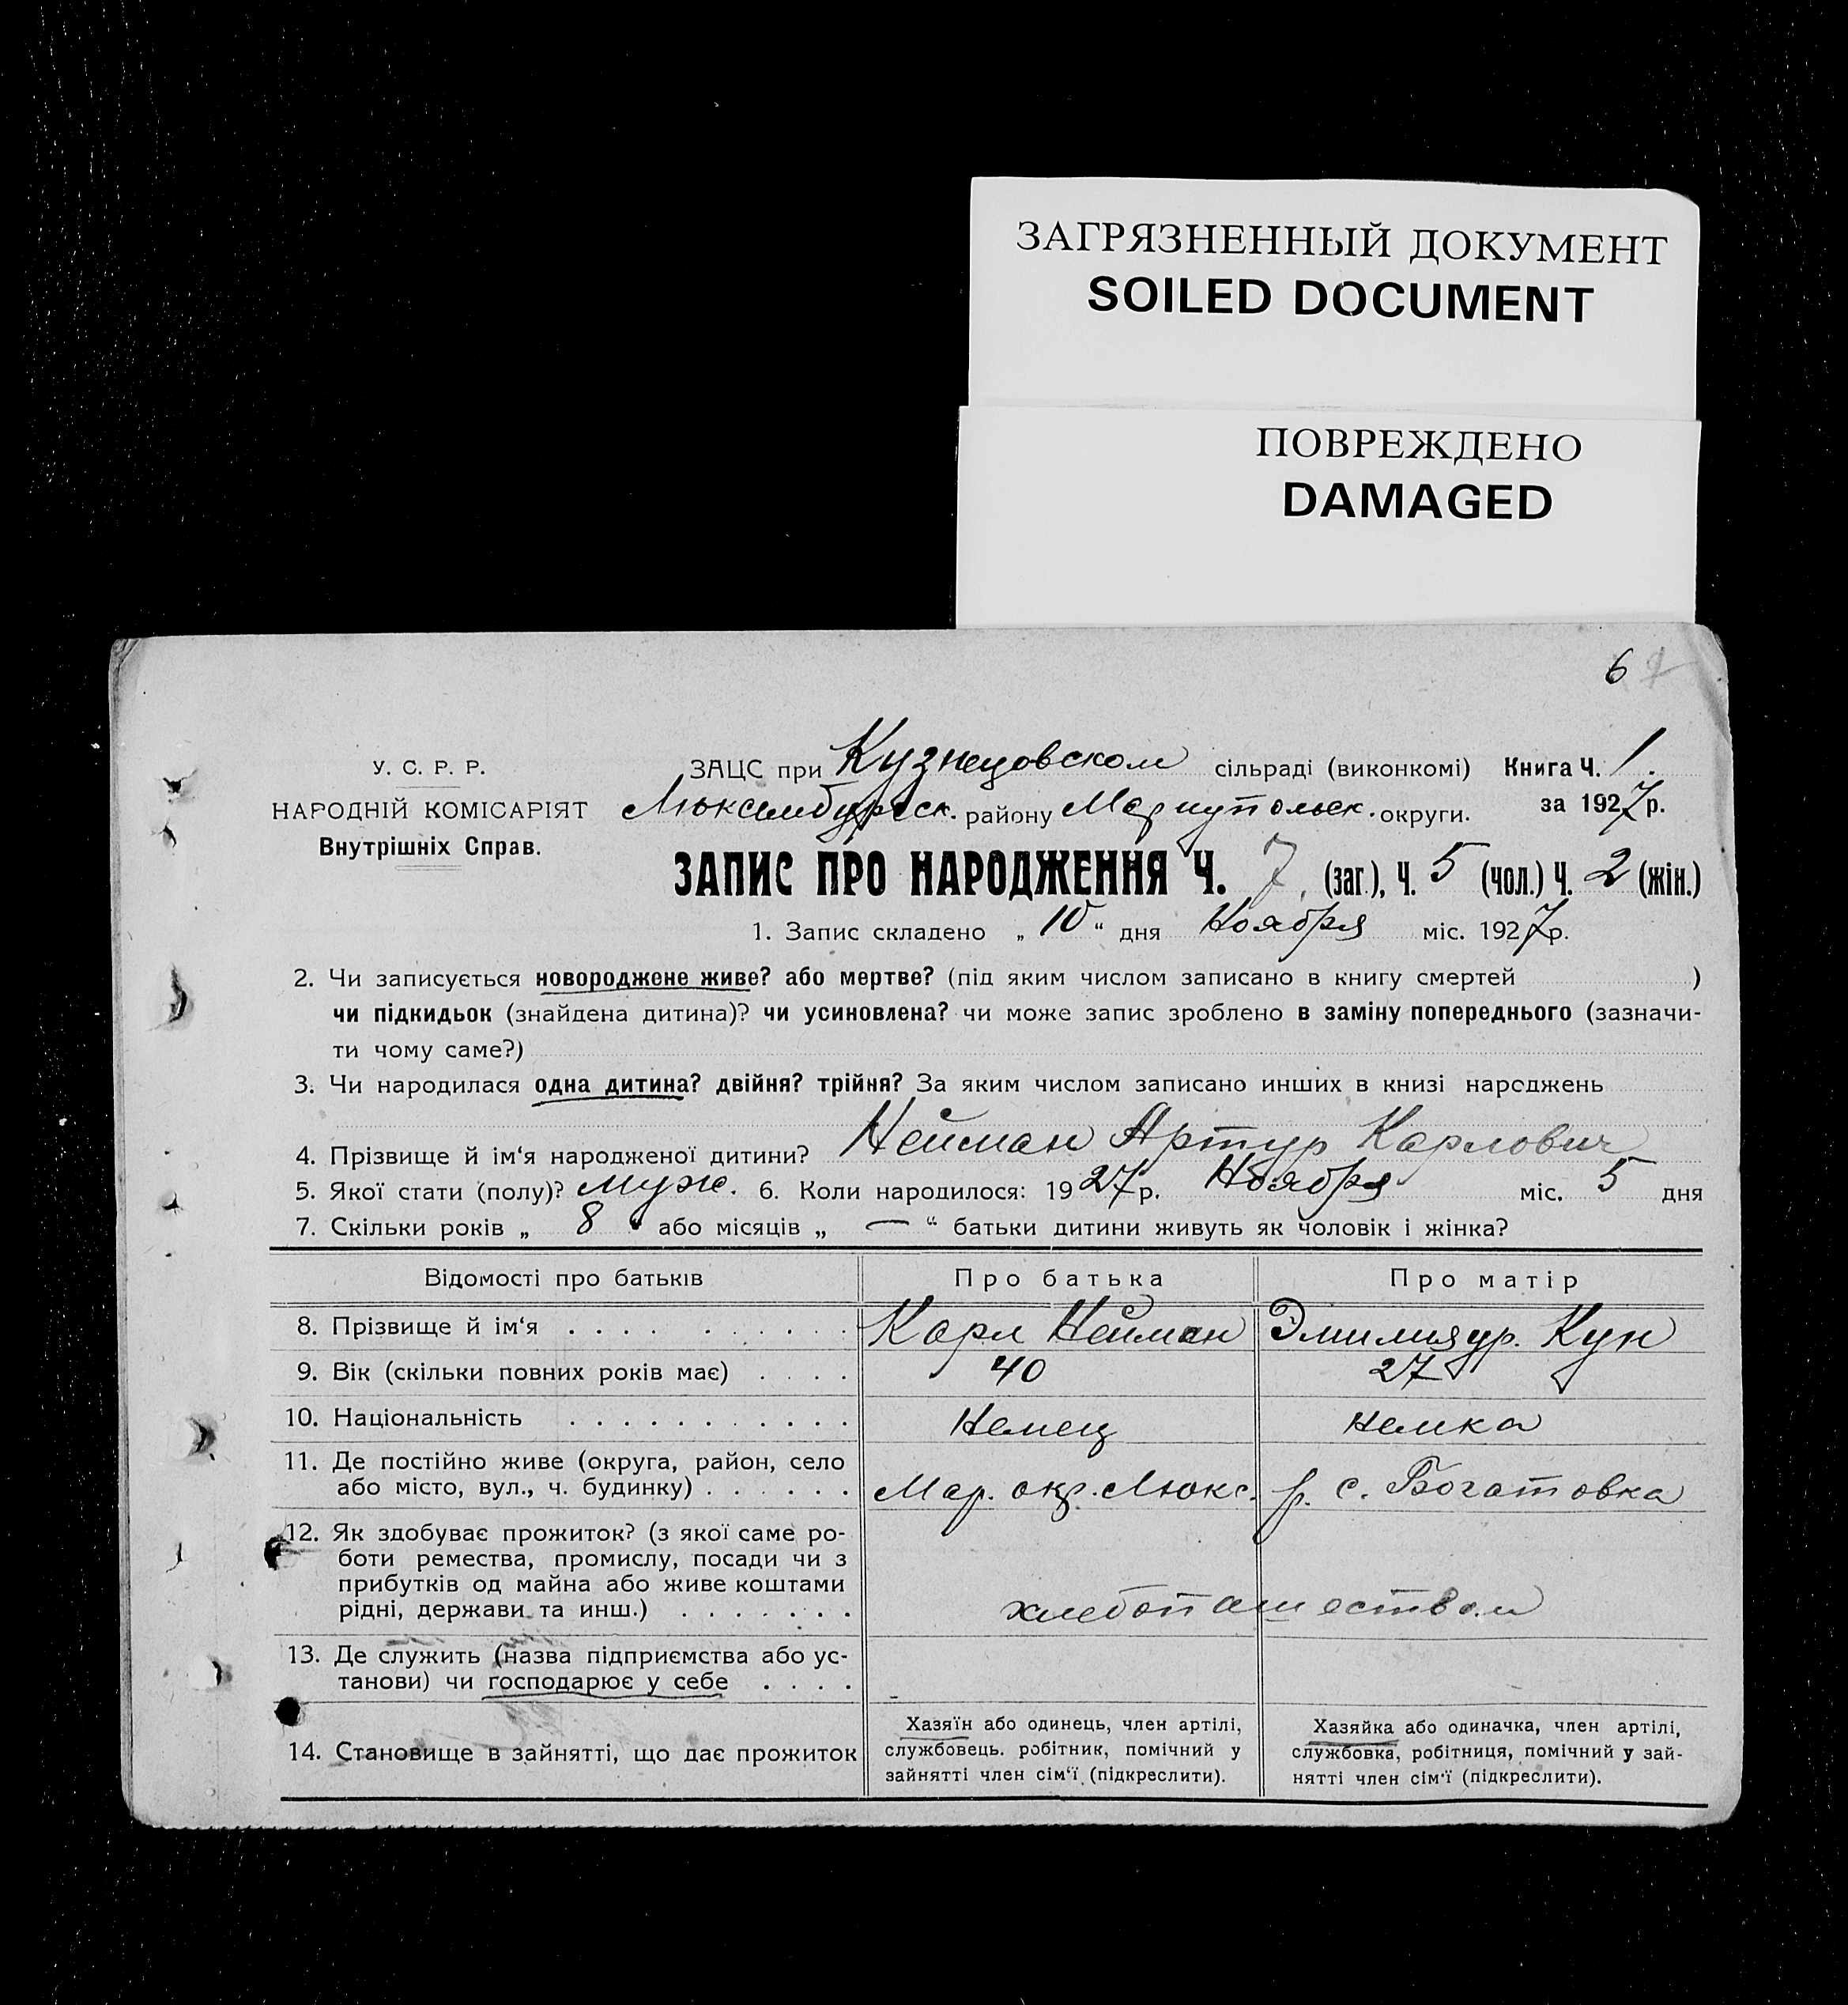 ЗАГРЯЗНЕННЫЙ ДОКУМЕНТ
SOILED DOCUMENT
ПОВРЕЖДЕНО
DAMAGED
6
У. С. Р. Р.
НАРОДНІЙ КОМІСАРІЯТ
Внутрішніх Справ.
ЗАЦС при Кузнецовском сільраді (виконкомі) Книга Ч. 1.
Люксембургск. району Мариупольск. округи. за 1927 р.
ЗАПИС ПРО НАРОДЖЕННЯ Ч. 7 (заг.), Ч. 5 (чол.) Ч. 2 (жін.)
1. Запис складено „ 10 “ дня Ноября міс. 1927 р.
2. Чи записується новороджене живе? або мертве? (під яким числом записано в книгу смертей )
чи підкидьок (знайдена дитина)? чи усиновлена? чи може запис зроблено в заміну попереднього (зазначи-
ти чому саме?)
3. Чи народилася одна дитина? двійня? трійня? За яким числом записано инших в книзі народжень
4. Прізвище й ім‘я народженої дитини? Нейман Артур Карлович
5. Якої стати (полу)? муж. 6. Коли народилося: 1927 р. Ноября міс. 5 дня
7. Скільки років „ 8 “ або місяців „ — “ батьки дитини живуть як чоловік і жінка?
Відомості про батьків Про батька Про матір
8. Прізвище й ім‘я . . . . . . . . . . Карл Нейман Эмилия ур. Кун
9. Вік (скільки повних років має) . . . . 40 27
10. Національність . . . . . . . . . . . Немец немка
11. Де постійно живе (округа, район, село
або місто, вул., ч. будинку) . . . . . . Мар. окр. Люкс. р. с. Богатовка
12. Як здобуває прожиток? (з якої саме ро-
боти ремества, промислу, посади чи з
прибутків од майна або живе коштами
рідні, держави та инш.) . . . . . . . хлебопашеством
13. Де служить (назва підприємства або ус-
танови) чи господарює у себе . . . .
14. Становище в зайнятті, що дає прожиток
Хазяїн або одинець, член артілі,
службовець. робітник, помічний у
зайнятті член сім‘ї (підкреслити).
Хазяйка або одиначка, член артілі,
службовка, робітниця, помічний у зай-
нятті член сім‘ї (підкреслити).